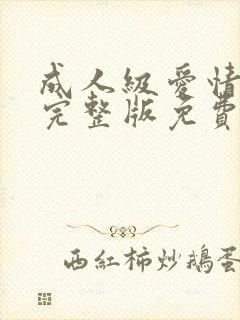 成人級愛情
完整版免費
西紅柿炒鵝蛋